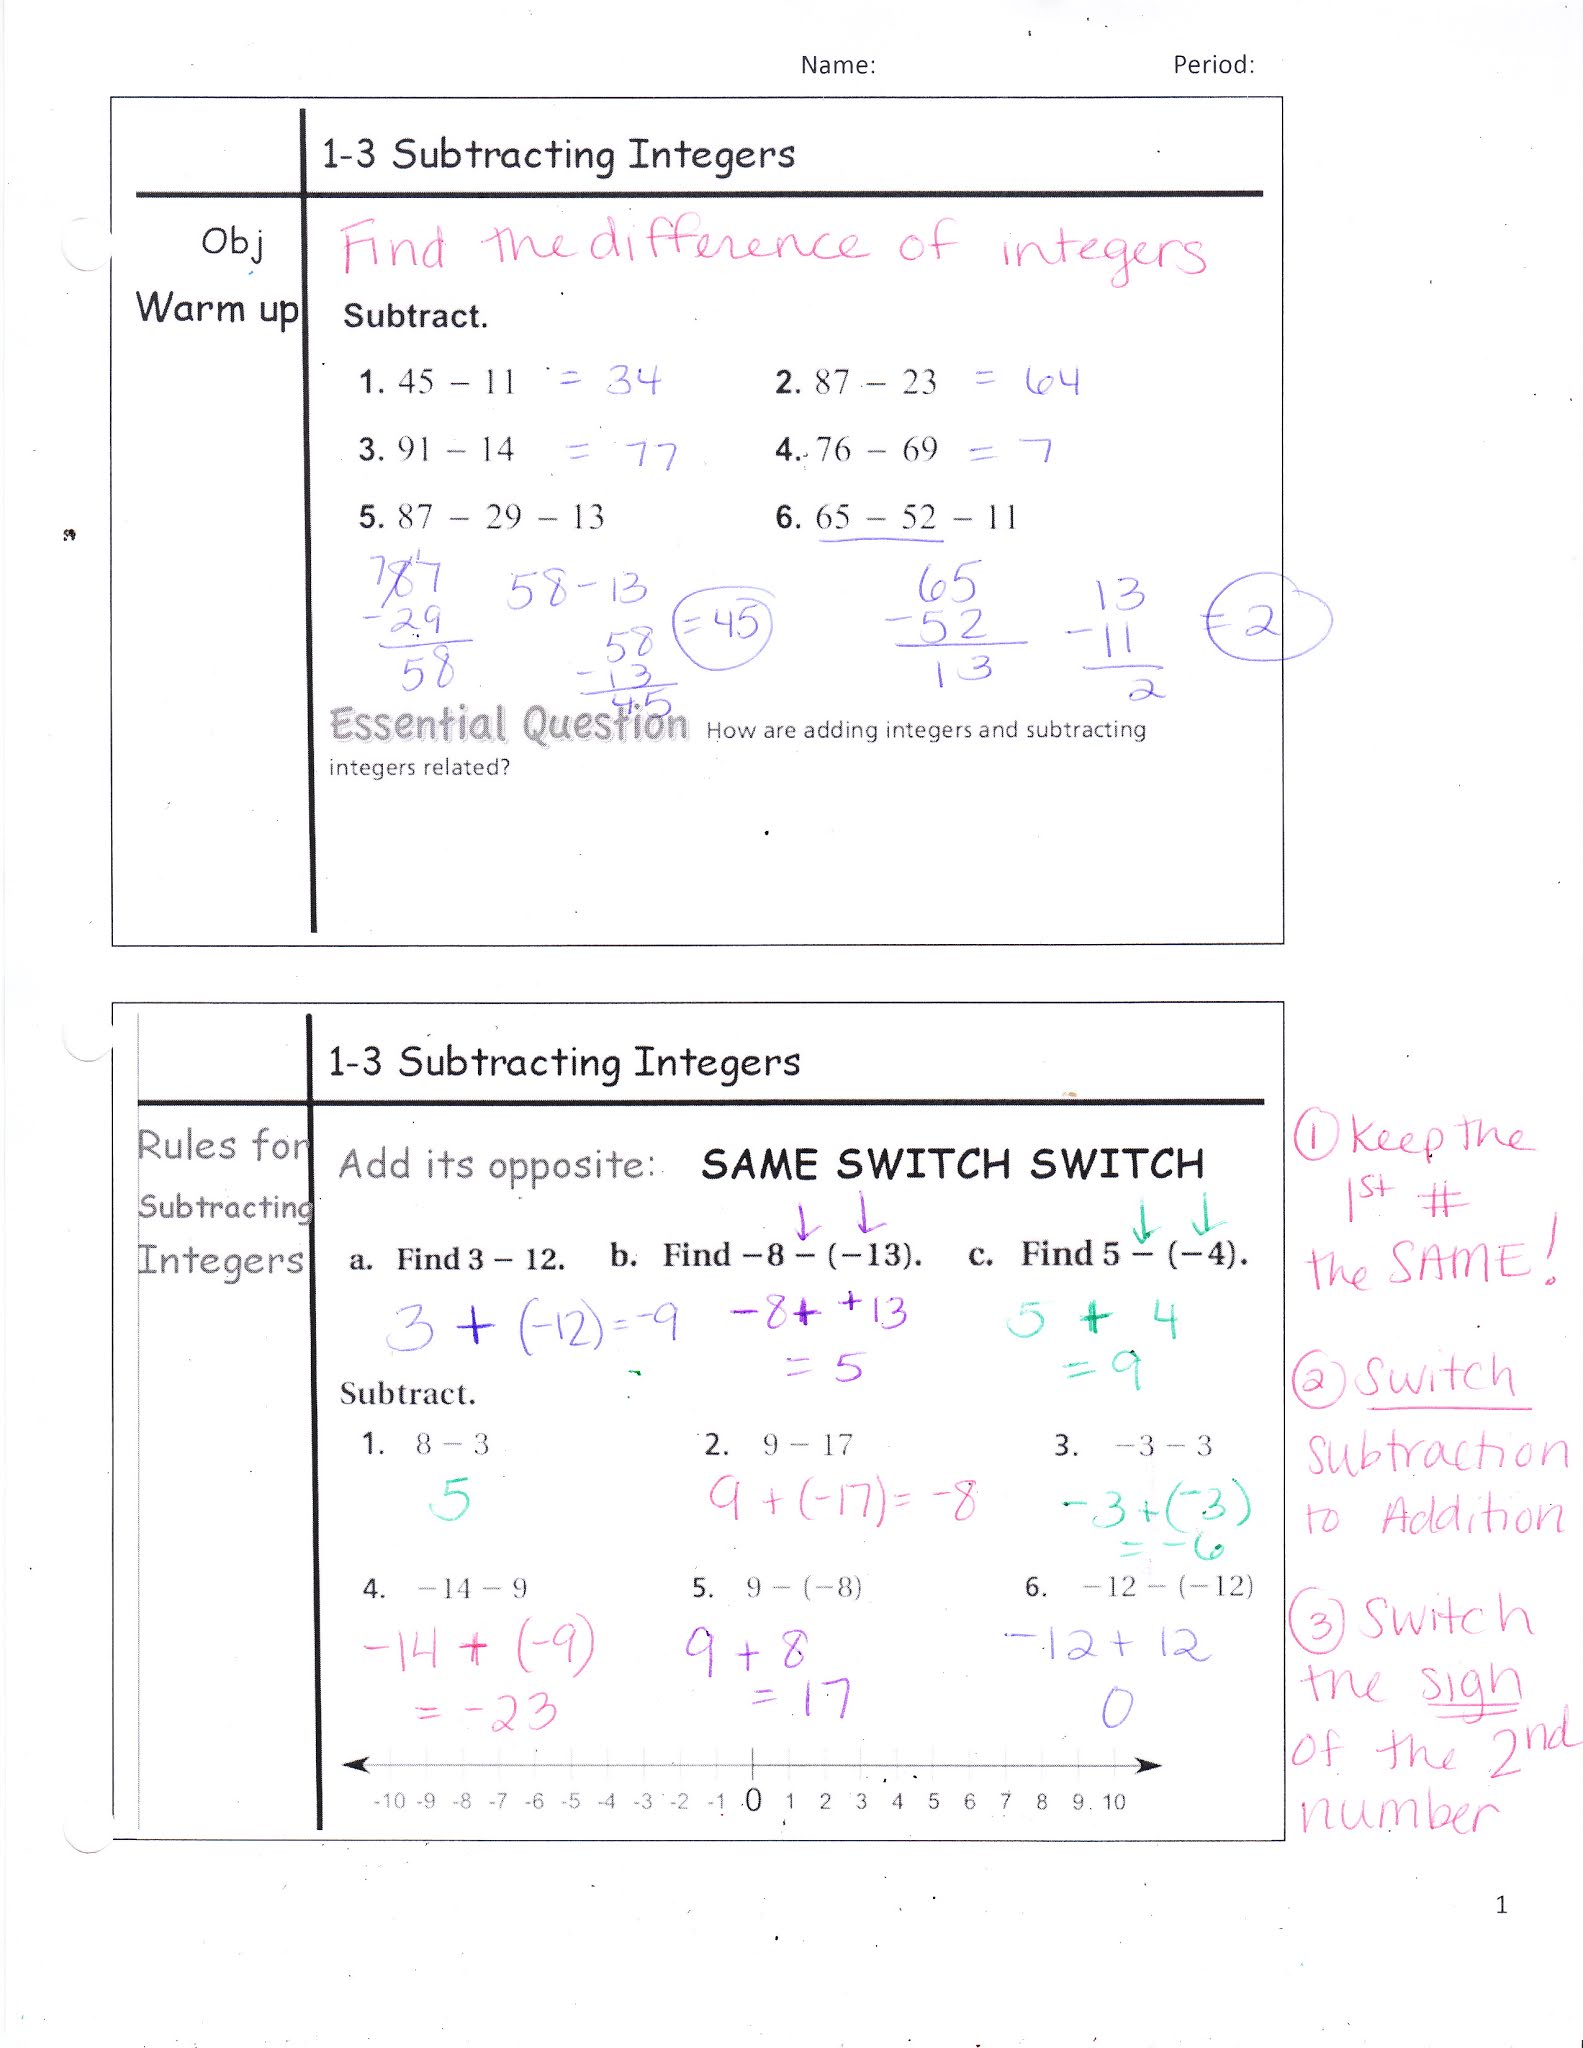 Name: Period:
1-3 Subtracting Integers
Obj Find the difference of integers
Warm up Subtract.
1. 45 – 11 = 34 2. 87 – 23 = 64
3. 91 – 14 = 77 4. 76 – 69 = 7
5. 87 – 29 – 13 6. 65 – 52 – 11
7 1
87 58 - 13 65 13
- 29 58 = 45 - 52 - 11 = 2
58 - 13 13 2
45
Essential Question How are adding integers and subtracting
integers related?
1-3 Subtracting Integers
Rules for
Subtracting
Integers
Add its opposite: SAME SWITCH SWITCH
a. Find 3 – 12. b. Find –8 – (–13). c. Find 5 – (–4).
3 + (-12) = -9 -8 + +13 5 + 4
= 5 = 9
Subtract.
1. 8 – 3 2. 9 – 17 3. –3 – 3
5 9 + (-17) = -8 -3 + (-3)
= -6
4. –14 – 9 5. 9 – (–8) 6. –12 – (–12)
-14 + (-9) 9 + 8 -12 + 12
= -23 = 17 0
-10 -9 -8 -7 -6 -5 -4 -3 -2 -1 0 1 2 3 4 5 6 7 8 9 10
① Keep the
1st #
the SAME!
② Switch
subtraction
to Addition
③ Switch
the sign
of the 2nd
number
1